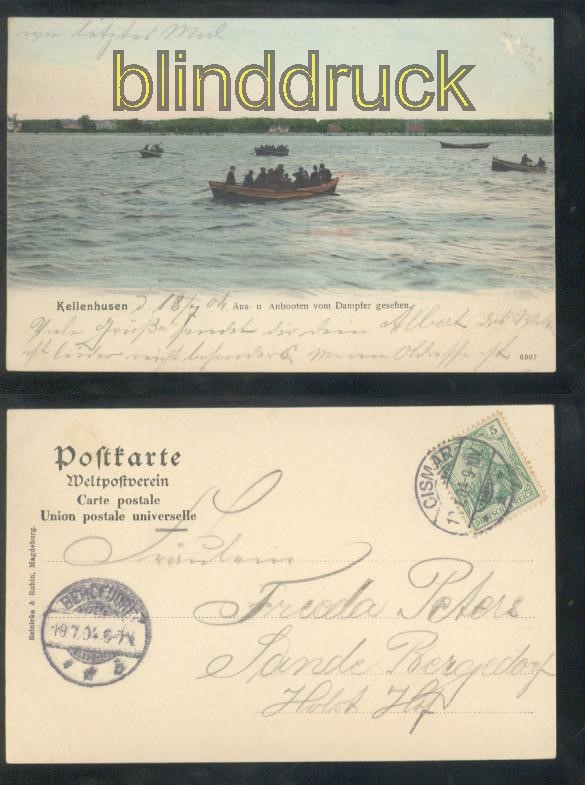 wie letztes Mal
blinddruck
Kellenhusen d 18/7 04 Aus- u Anbooten vom Dampfer gesehen.
Viele Grüße sendet dir dein Albert das
ist leider nicht besonders. Meine Adresse ist
6907
Postkarte
Weltpostverein
Carte postale
Union postale universelle
CISMAR
5
DEUTSCHES REICH
Reinicke & Rubin, Magdeburg.
Fräulein
BERGEDORF
19.7.04.6-7V
Frieda Peters
Sande Bergedorf
Holst Hof